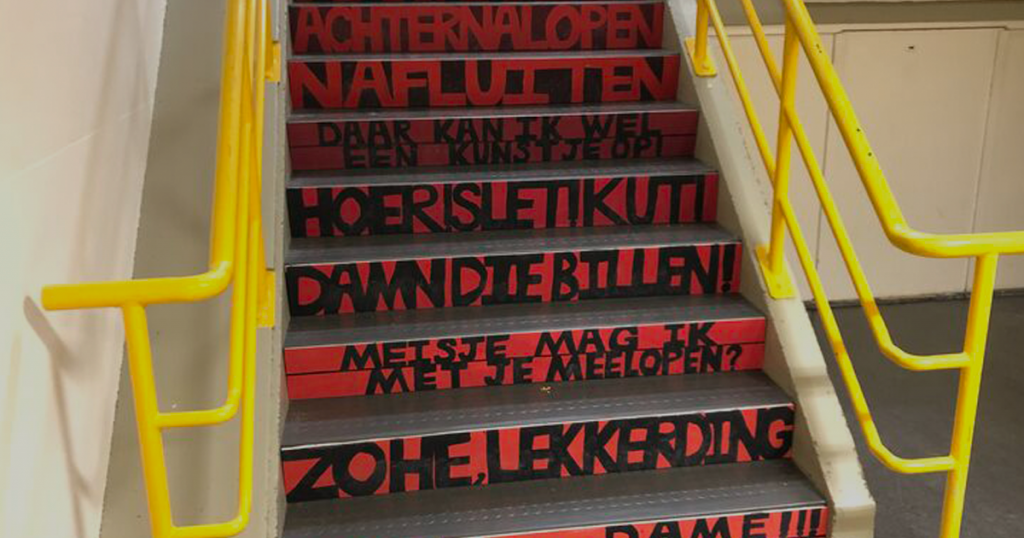 ACHTERNALOPEN
NAFLUITEN
DAAR KAN IK WEL
EEN KUNSTJE OP!
HOER!SLET!KUT!
DAMN DIE BILLEN!
MEISJE MAG IK
MET JE MEELOPEN?
ZOHE, LEKKERDING
DAME!!!